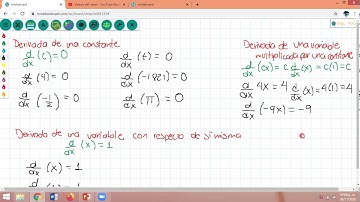 Derivada de una constante
d/dx (c) = 0
d/dx (t) = 0
d/dx (9) = 0
d/dx (-1821) = 0
d/dx (-1/2) = 0
d/dx (π) = 0
Derivada de una variable
multiplicada por una constante
d/dx (cx) = c d/dx (x) = c(1) = c
d/dx 4x = 4 d/dx (x) = 4(1) = 4
d/dx (-9x) = -9
Derivada de una variable con respecto de si misma
d/dx (x) = 1
d/dx (x) = 1